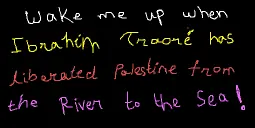 Wake me up when
Ibrahim Traoré has
liberated Palestine from
the River to the Sea!